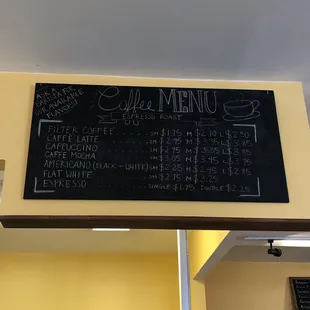 ASK A
BARISTA FOR
OUR AVAILABLE
FLAVORS!
Coffee MENU
ESPRESSO ROAST
FILTER COFFEE SM $1.75 M $2.10 L $2.50
CAFFE LATTE SM $2.75 M $3.35 L $3.85
CAPPUCCINO SM $2.75 M $3.35 L $3.85
CAFFE MOCHA SM $3.05 M $3.95 L $4.25
AMERICANO (BLACK - WHITE) SM $2.25 M $2.45 L $2.85
FLAT WHITE SM $2.75 M $3.25
ESPRESSO SINGLE $1.75 DOUBLE $2.25